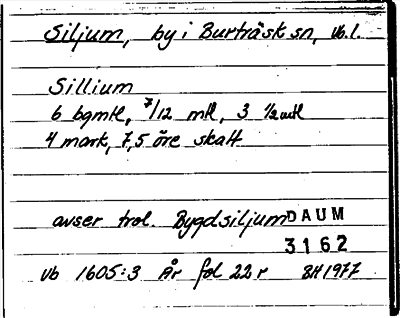 Siljum, by i Burträsk sn, Vb. l.
Sillium
6 bgmtl, 7/12 mtl, 3 1/2 mtl
4 mark, 7,5 öre skatt
avser trol. Bygdsiljum DAUM
3162
Vb 1605:3 År fol 22 r BH 1977